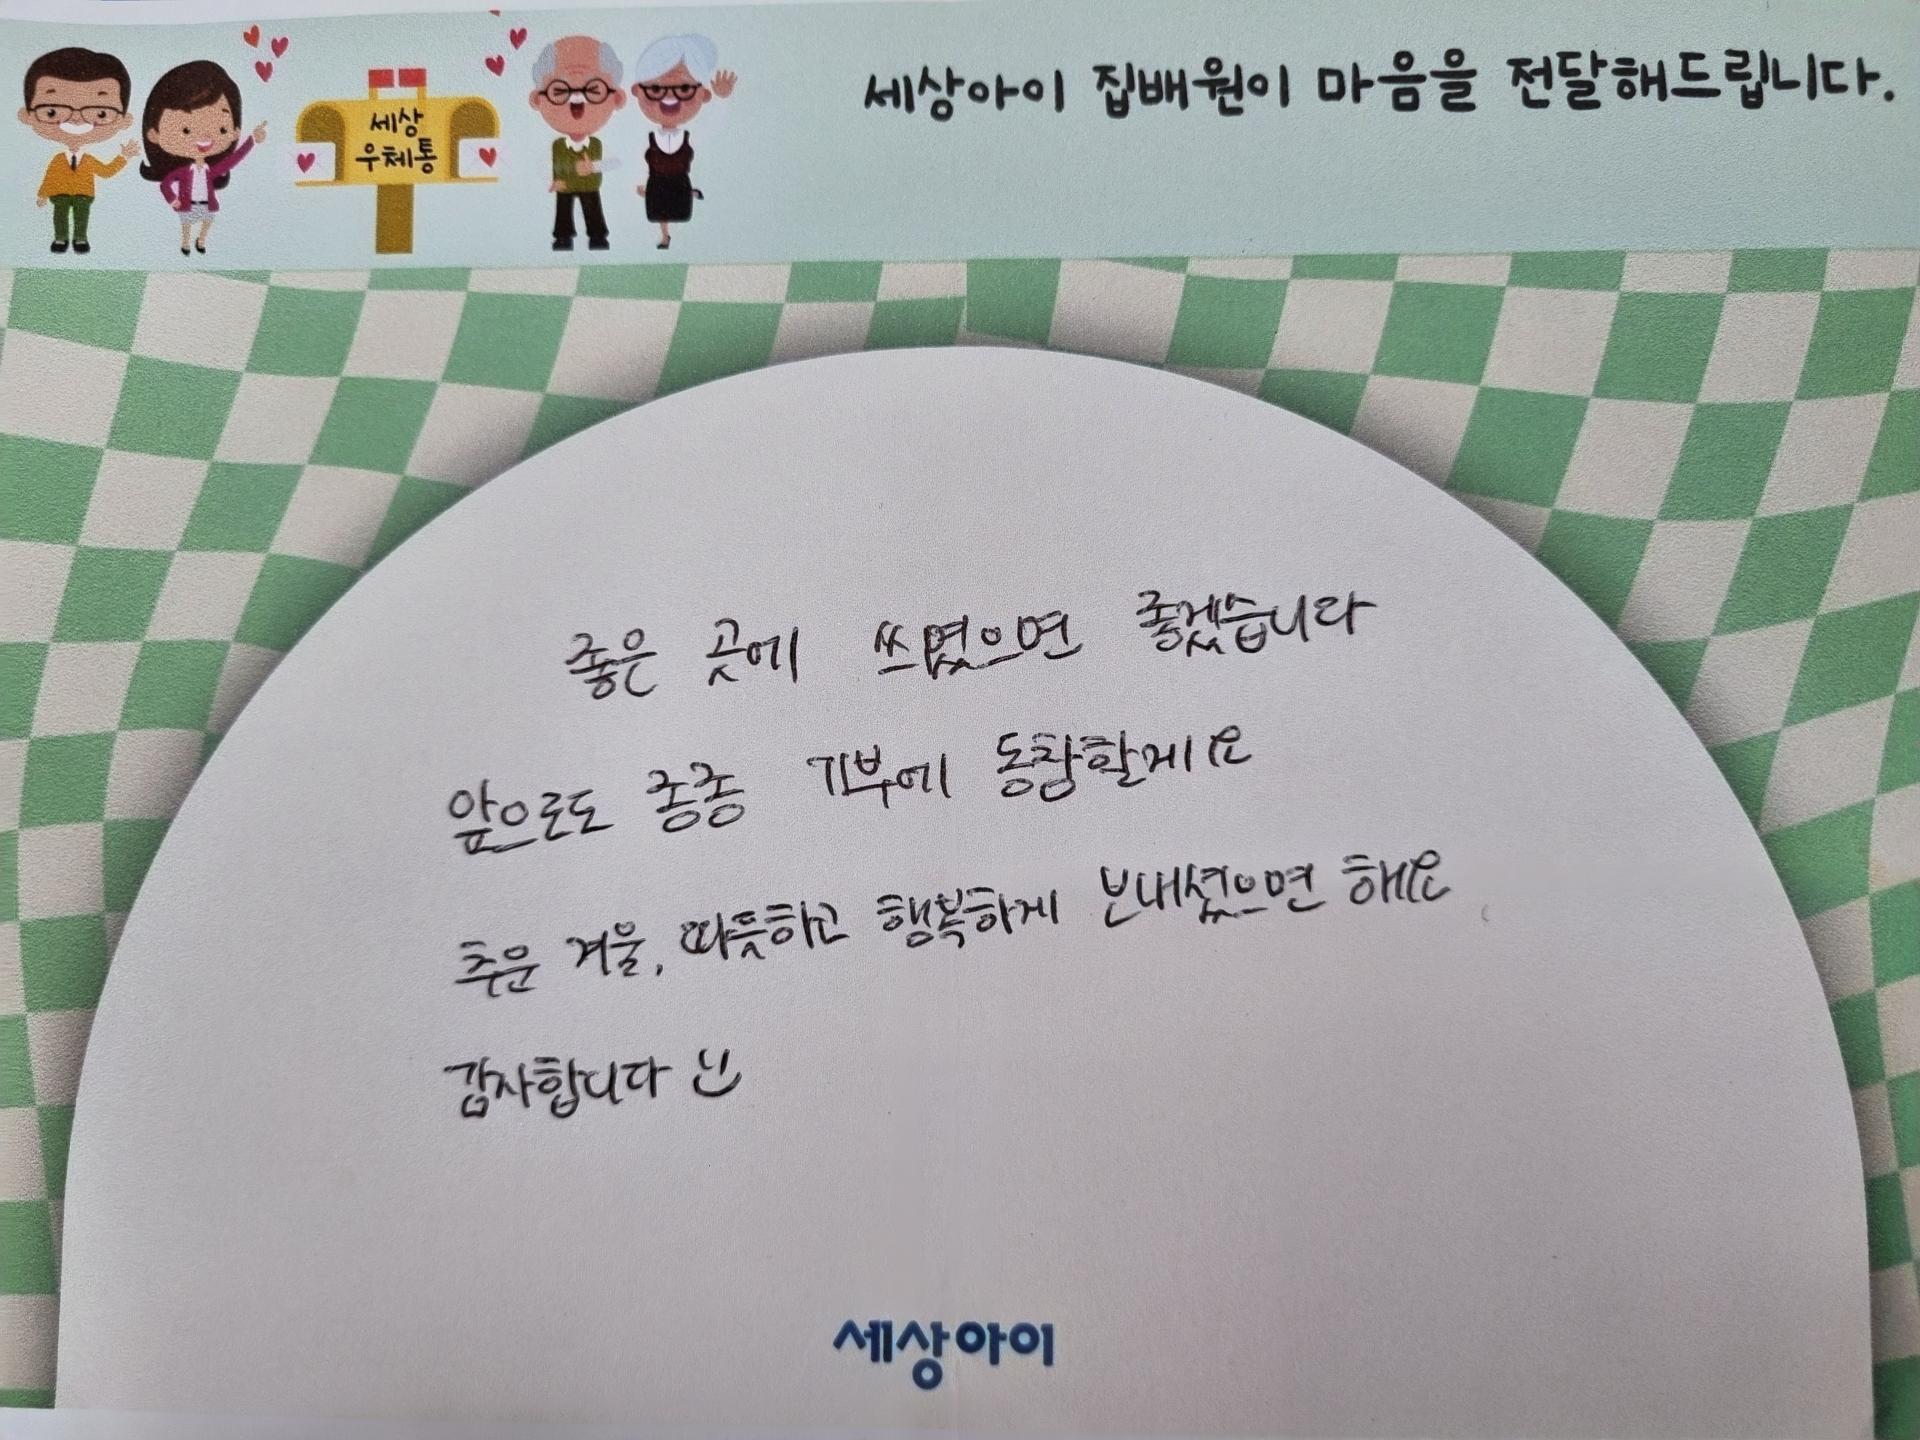 세상아이 집배원이 마음을 전달해드립니다.
세상
우체통
좋은 곳에 쓰였으면 좋겠습니다
앞으로도 종종 기부에 동참할게요
추운 겨울, 따듯하고 행복하게 보내셨으면 해요
감사합니다
세상아이